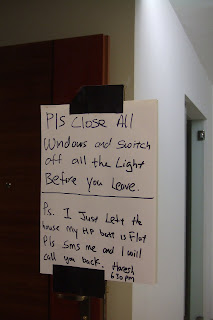 Pls Close All
Windows and Switch
off all the Light
Before you Leave.
Ps. I Just Left the
house my HP batt is Flat
Pls sms me and I will
call you back. Haresh
6.30 pm